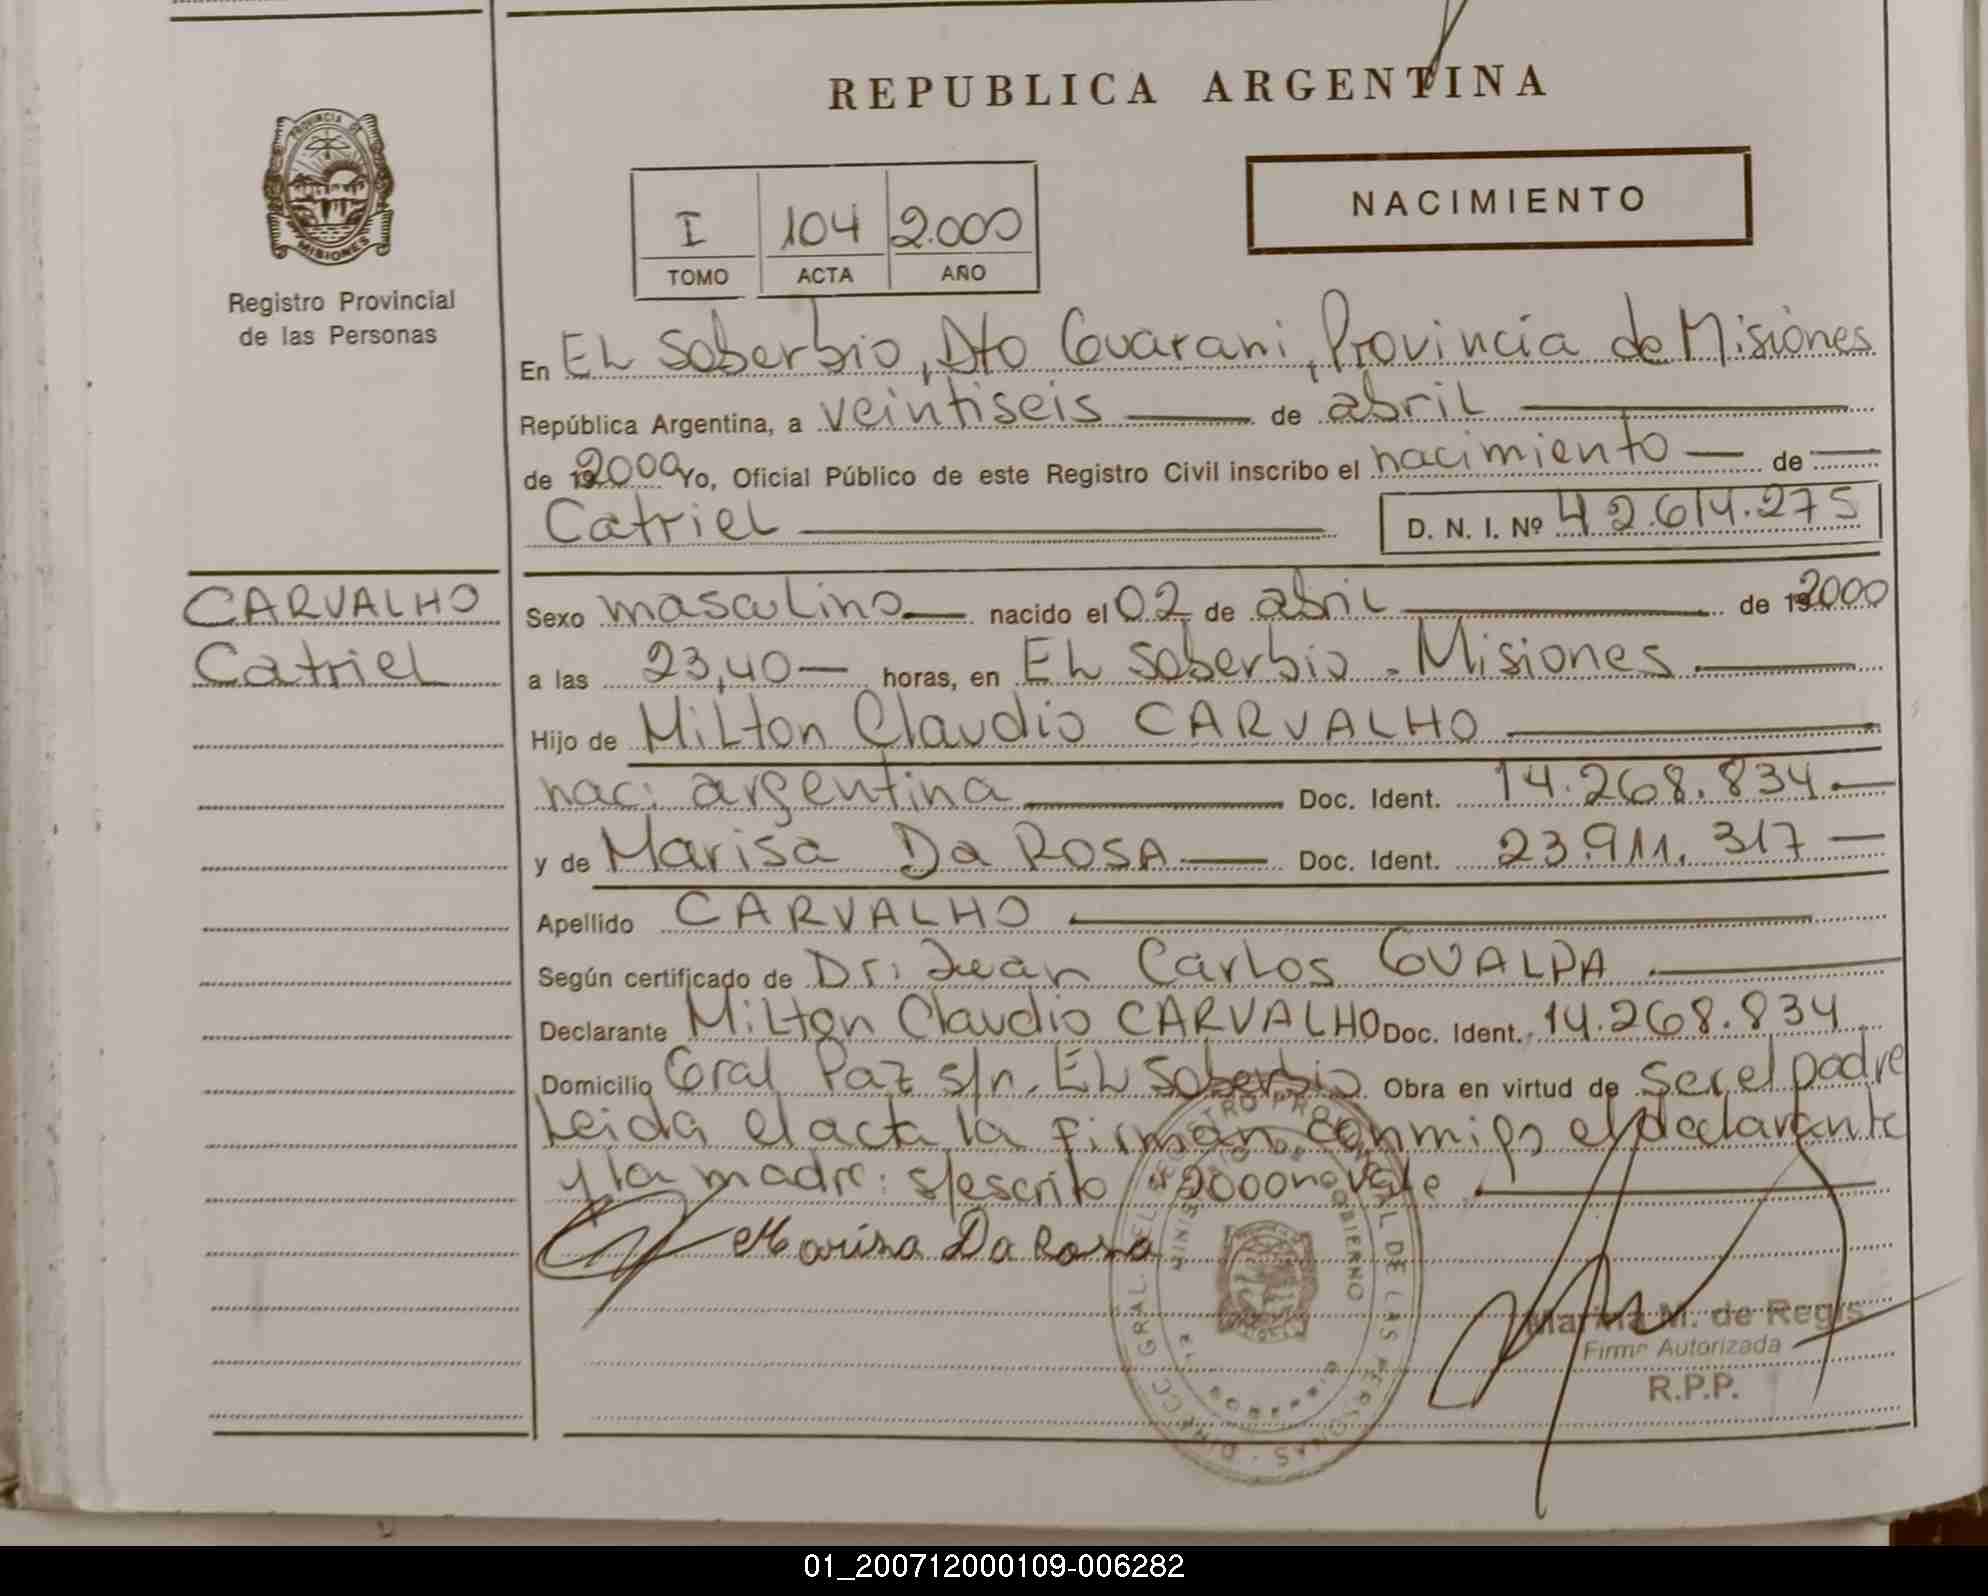 REPUBLICA ARGENTINA
PROVINCIA DE
MISIONES
Registro Provincial
de las Personas
NACIMIENTO
I 104 2.000
TOMO ACTA AÑO
En EL Soberbio, Dto Guarani, Provincia de Misiones
República Argentina, a veintiseis de abril
de 2000 Yo, Oficial Público de este Registro Civil inscribo el nacimiento de
Catriel D. N. I. Nº 42.614.275
CARVALHO
Catriel
Sexo masculino nacido el 02 de abril de 192000
a las 23,40 horas, en EL Soberbio - Misiones
Hijo de Milton Claudio CARVALHO
nac: argentina Doc. Ident. 14.268.834
y de Marisa Da ROSA Doc. Ident. 23.911.317
Apellido CARVALHO
Según certificado de Dr: Juan Carlos GUALPA
Declarante Milton Claudio CARVALHO Doc. Ident. 14.268.834
Domicilio Gral Paz s/n. EL Soberbio Obra en virtud de ser el padre
Leida el acta la firman conmigo el declarante
y la madre: s/escrito 2000 no vale
Marisa Da Rosa
Marina M. de Regis
Firma Autorizada
R.P.P.
01_200712000109-006282